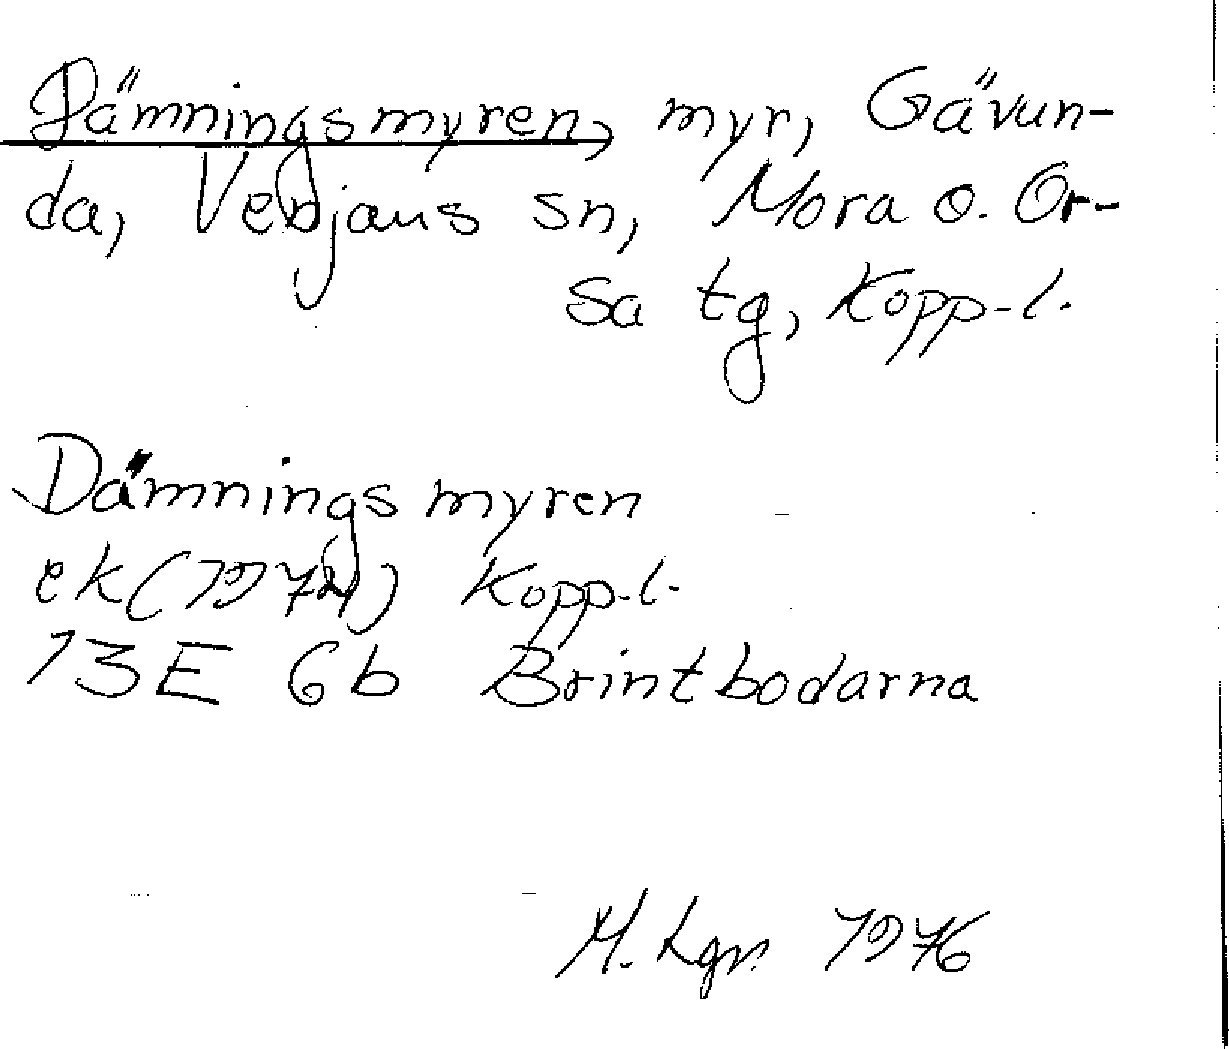 Dämningsmyren, myr, Gävun-
da, Venjans sn, Mora o. Or-
sa tg, Kopp.l.
Dämningsmyren
ek (1974) Kopp.l.
13E 6b Brintbodarna
M. Lgn 1976